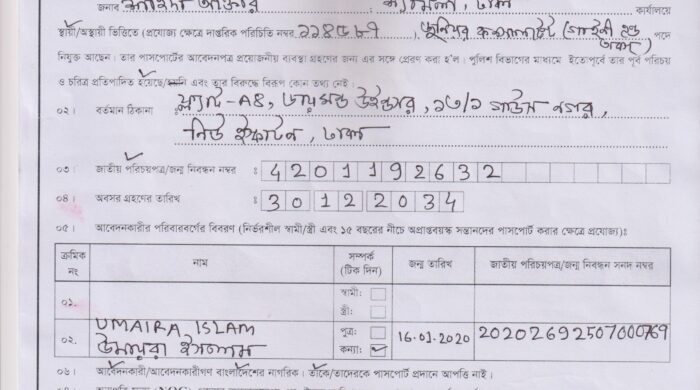 জনাব ফারিদা আক্তার , ঢাকা কার্যালয়ে
স্থায়ী/অস্থায়ী ভিত্তিতে (প্রযোজ্য ক্ষেত্রে দাপ্তরিক পরিচিতি নম্বর ১১৪৫৮৭ ), জুনিয়র কনসালটেন্ট (গাইনী এন্ড অবস) পদে
নিযুক্ত আছেন। তার পাসপোর্টের আবেদনপত্র প্রয়োজনীয় ব্যবস্থা গ্রহণের জন্য এর সঙ্গে প্রেরণ করা হ'ল। পুলিশ বিভাগের মাধ্যমে ইতোপূর্বে তার পূর্ব পরিচয়
ও চরিত্র প্রতিপাদিত হয়েছে/হয়নি এবং তার বিরুদ্ধে বিরূপ কোন তথ্য নেই।
০২। বর্তমান ঠিকানা : ফ্ল্যাট-A8, ডায়মন্ড উইন্ডার, ১৩/১ গাউস নগর,
নিউ ইস্কাটন, ঢাকা
০৩। জাতীয় পরিচয়পত্র/জন্ম নিবন্ধন নম্বর : 4201192632
০৪। অবসর গ্রহণের তারিখ : 30122034
০৫। আবেদনকারীর পরিবারবর্গের বিবরণ (নির্ভরশীল স্বামী/স্ত্রী এবং ১৫ বছরের নীচে অপ্রাপ্তবয়স্ক সন্তানদের পাসপোর্ট করার ক্ষেত্রে প্রযোজ্য)ঃ
ক্রমিক নং নাম সম্পর্ক (টিক দিন) জন্ম তারিখ জাতীয় পরিচয়পত্র/জন্ম নিবন্ধন সনদ নম্বর
০১. স্বামী:
স্ত্রী:
০২. UMAIRA ISLAM পুত্র: 16.01.2020 20202692507000769
উমায়রা ইসলাম কন্যা:
০৬। আবেদনকারী/আবেদনকারীগণ বাংলাদেশের নাগরিক। তাঁকে/তাদেরকে পাসপোর্ট প্রদানে আপত্তি নাই।